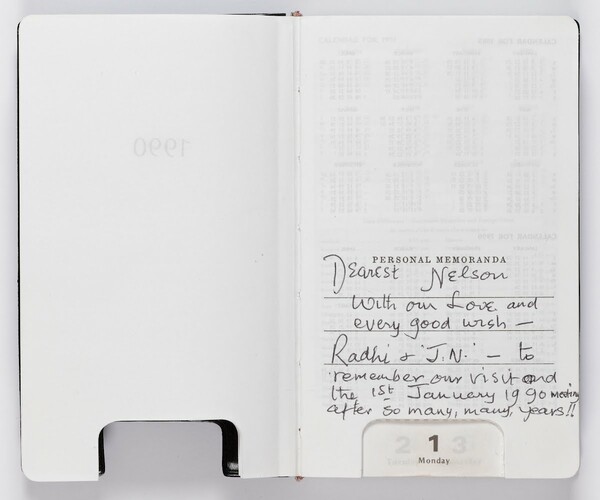 1990
PERSONAL MEMORANDA
Dearest Nelson
With our Love and
every good wish —
Radhi & 'J.N.' — to
remember our visit and
the 1st January 1990 meeting
after so many, many, years!!
2 1 3
Monday